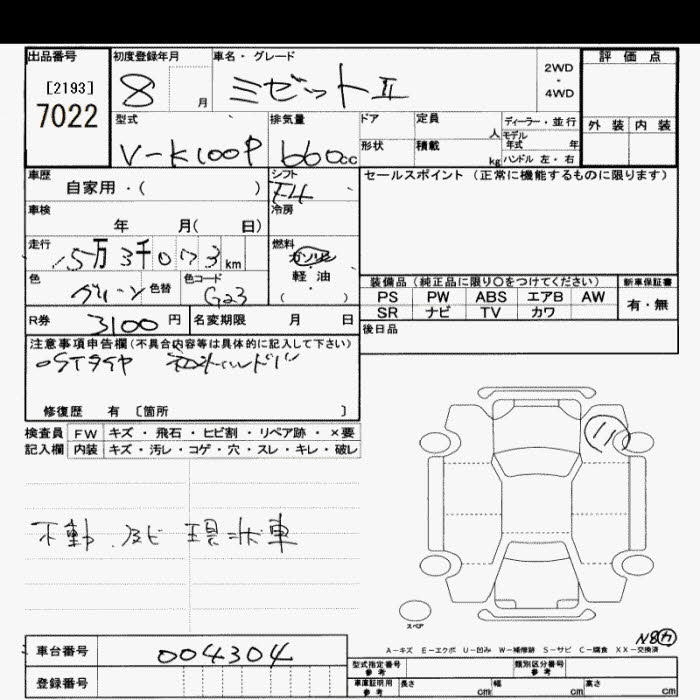 出品番号
[2193]
7022
初度登録年月
8 月
車名・グレード
ミゼットII
2WD
・
4WD
評価点
外装 内装
型式
V-K100P
排気量
660cc
ドア
形状
定員 人
積載 kg
ディーラー・並行
モデル年式 年
ハンドル 左・右
車歴
自家用・( )
シフト
F4
車検
年 月( 日)
冷房
走行
15万3千073km
燃料
ガソリン
・
軽油
( )
色
グリーン
色替
色コード
G23
セールスポイント(正常に機能するものに限ります)
装備品(純正品に限り○をつけてください)
PS PW ABS エアB AW
SR ナビ TV カワ
新車保証書
有・無
R券
3100円
名変期限 月 日
後日品
注意事項申告欄(不具合内容等は具体的に記入して下さい)
修復歴 有 〔箇所 〕
検査員 FW キズ・飛石・ヒビ割・リペア跡・×要
記入欄 内装 キズ・汚レ・コゲ・穴・スレ・キレ・破レ
不動 サビ 現状車
11
スペア
A-キズ E-エクボ U-凹み W-補修跡 S-サビ C-腐食 XX-交換済
車台番号
004304
登録番号
型式指定番号 参考
類別区分番号 参考
車庫証明用 参考 長さ cm 幅 cm 高さ cm